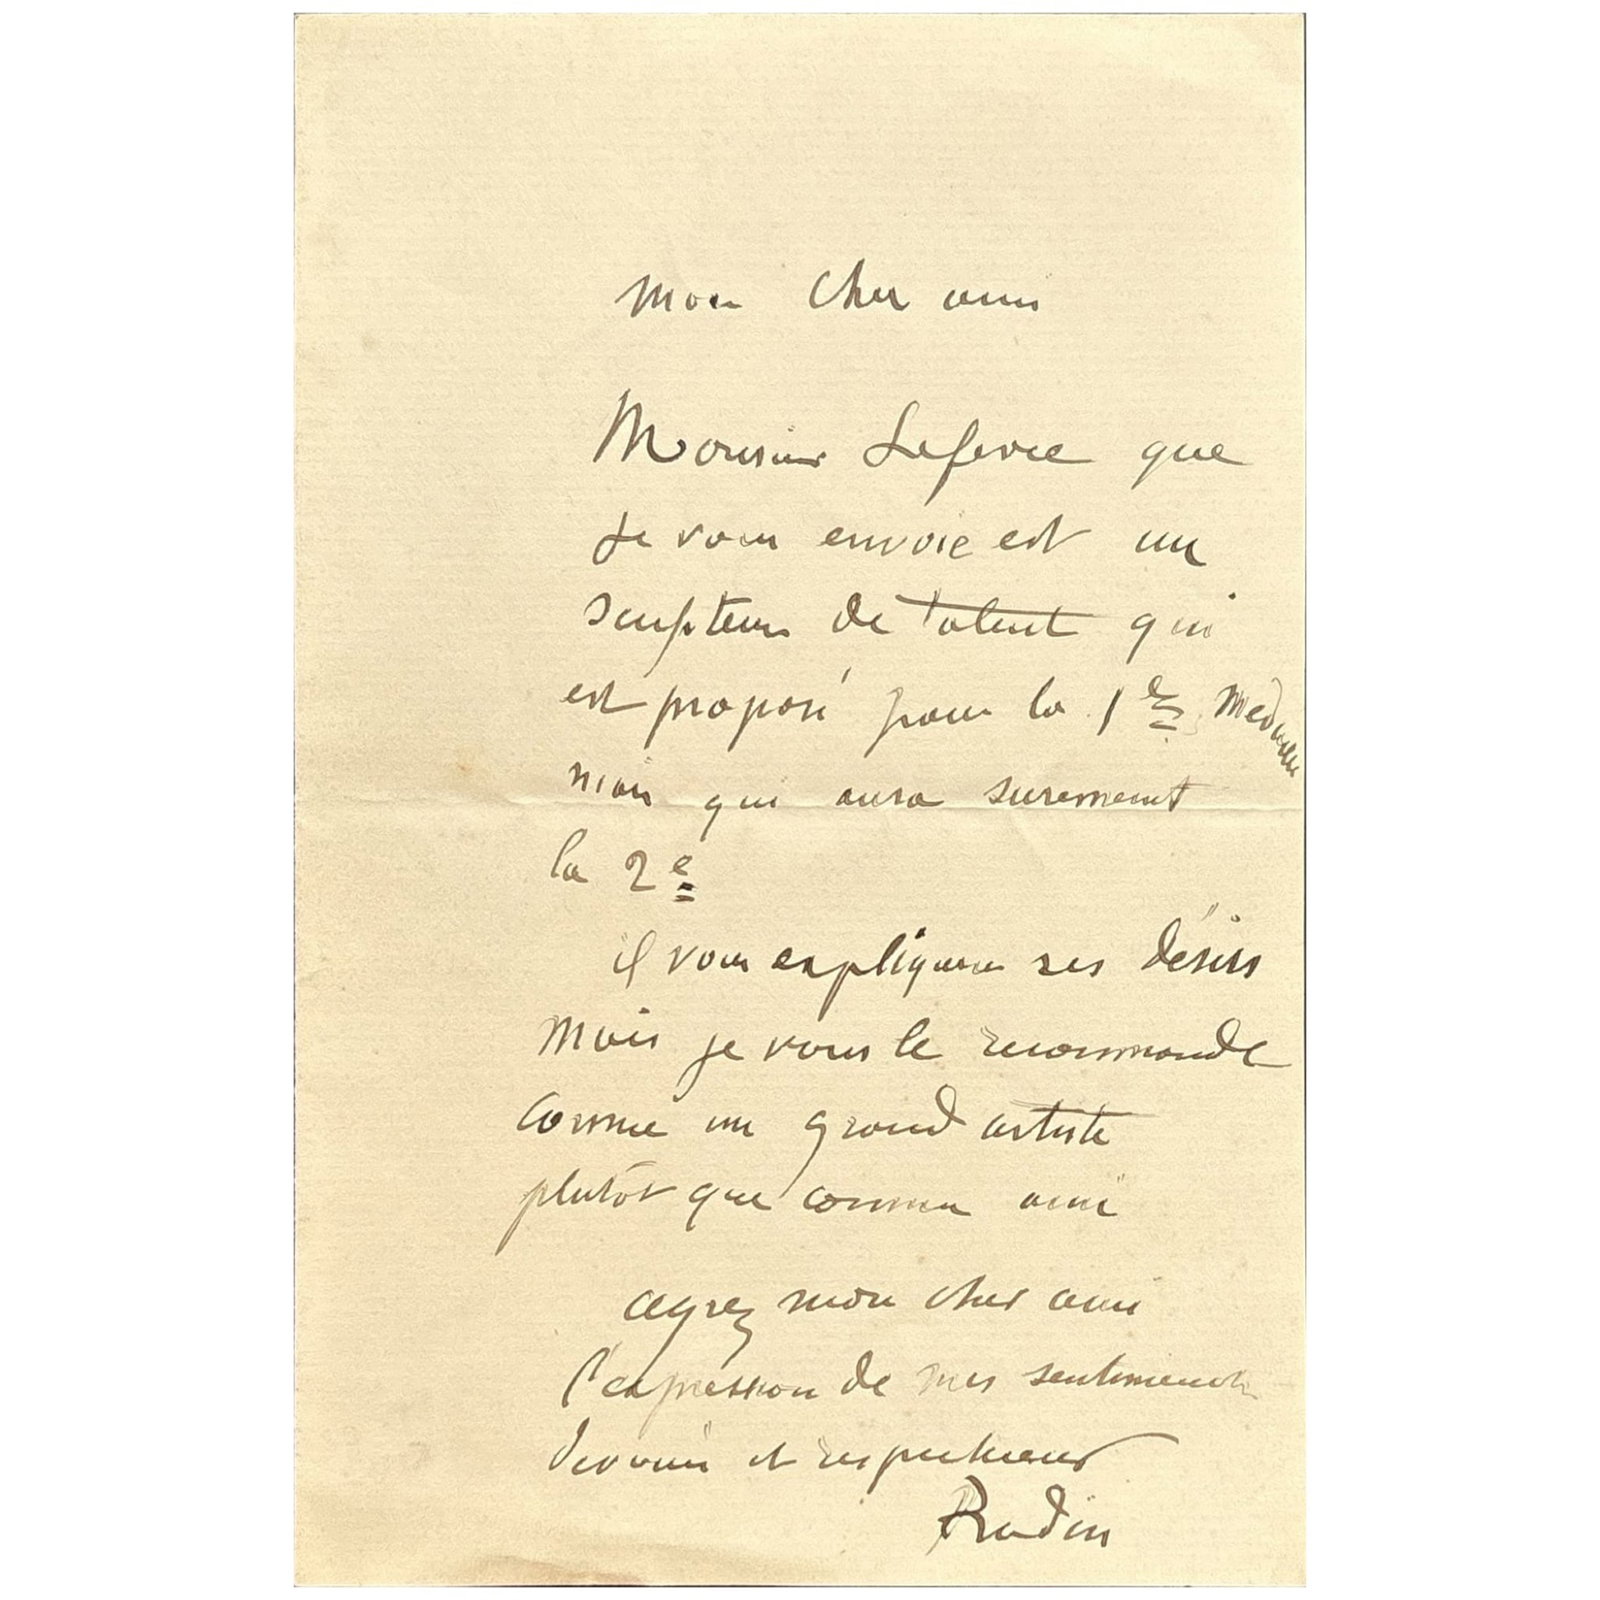 mon cher ami
Monsieur Lefevre que
je vous envoie est un
sculpteur de talent qui
est proposé pour la 1e Medaille
mais qui aura surement
la 2e
il vous expliquera ses désirs
mais je vous le recommande
comme un grand artiste
plutôt que comme ami
agrez mon cher ami
l'expression de mes sentiments
devoués et respectueux
Rodin